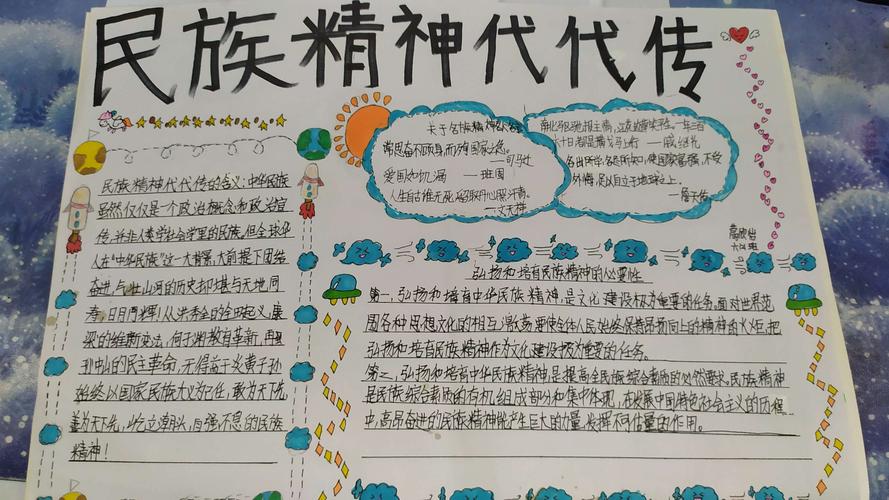 民族精神代代传
民族精神代代传的含义：中华民族
虽然仅仅是一个政治概念和政治宣
传，并非人类学社会学里的民族。但全球华
人在“中华民族”这一大背景、大前提下团结
奋进，与壮山河的历史却堪与天地同
寿，日月同辉！从洪秀全的金田起义，康
梁的维新变法，
孙中山的民主革命，无得益于炎黄子孙
始终以国家民族大义为己任，敢为天下先，
善为天下先，屹立潮头，自强不息的民族
精神！
关于名族精神的名言
常思奋不顾身，而殉国家之急。
——司马迁
爱国如饥渴 ——班固
人生自古谁无死，留取丹心照汗青。
——文天祥
南北驱驰报主情，江花边草笑平生。一年三百
六十日，都是横戈马上行 ——戚继光
各出所学，各尽所知，使国家富强，不受
外侮，足以自立于地球之上。
——詹天佑
弘扬和培育民族精神的必要性
第一，弘扬和培育中华民族精神，是文化建设极为重要的任务。面对世界范
围各种思想文化的相互激荡，要使全体人民始终保持昂扬向上的精神的火炬，把
弘扬和培育民族精神作为文化建设极为重要的任务。
第二，弘扬和培育中华民族精神是提高全民族综合素质的必然要求。民族精神
是民族综合素质的有机组成部分和集中体现，在发展中国特色社会主义的历程
中，高昂奋进的民族精神能产生巨大的力量，发挥不可估量的作用。